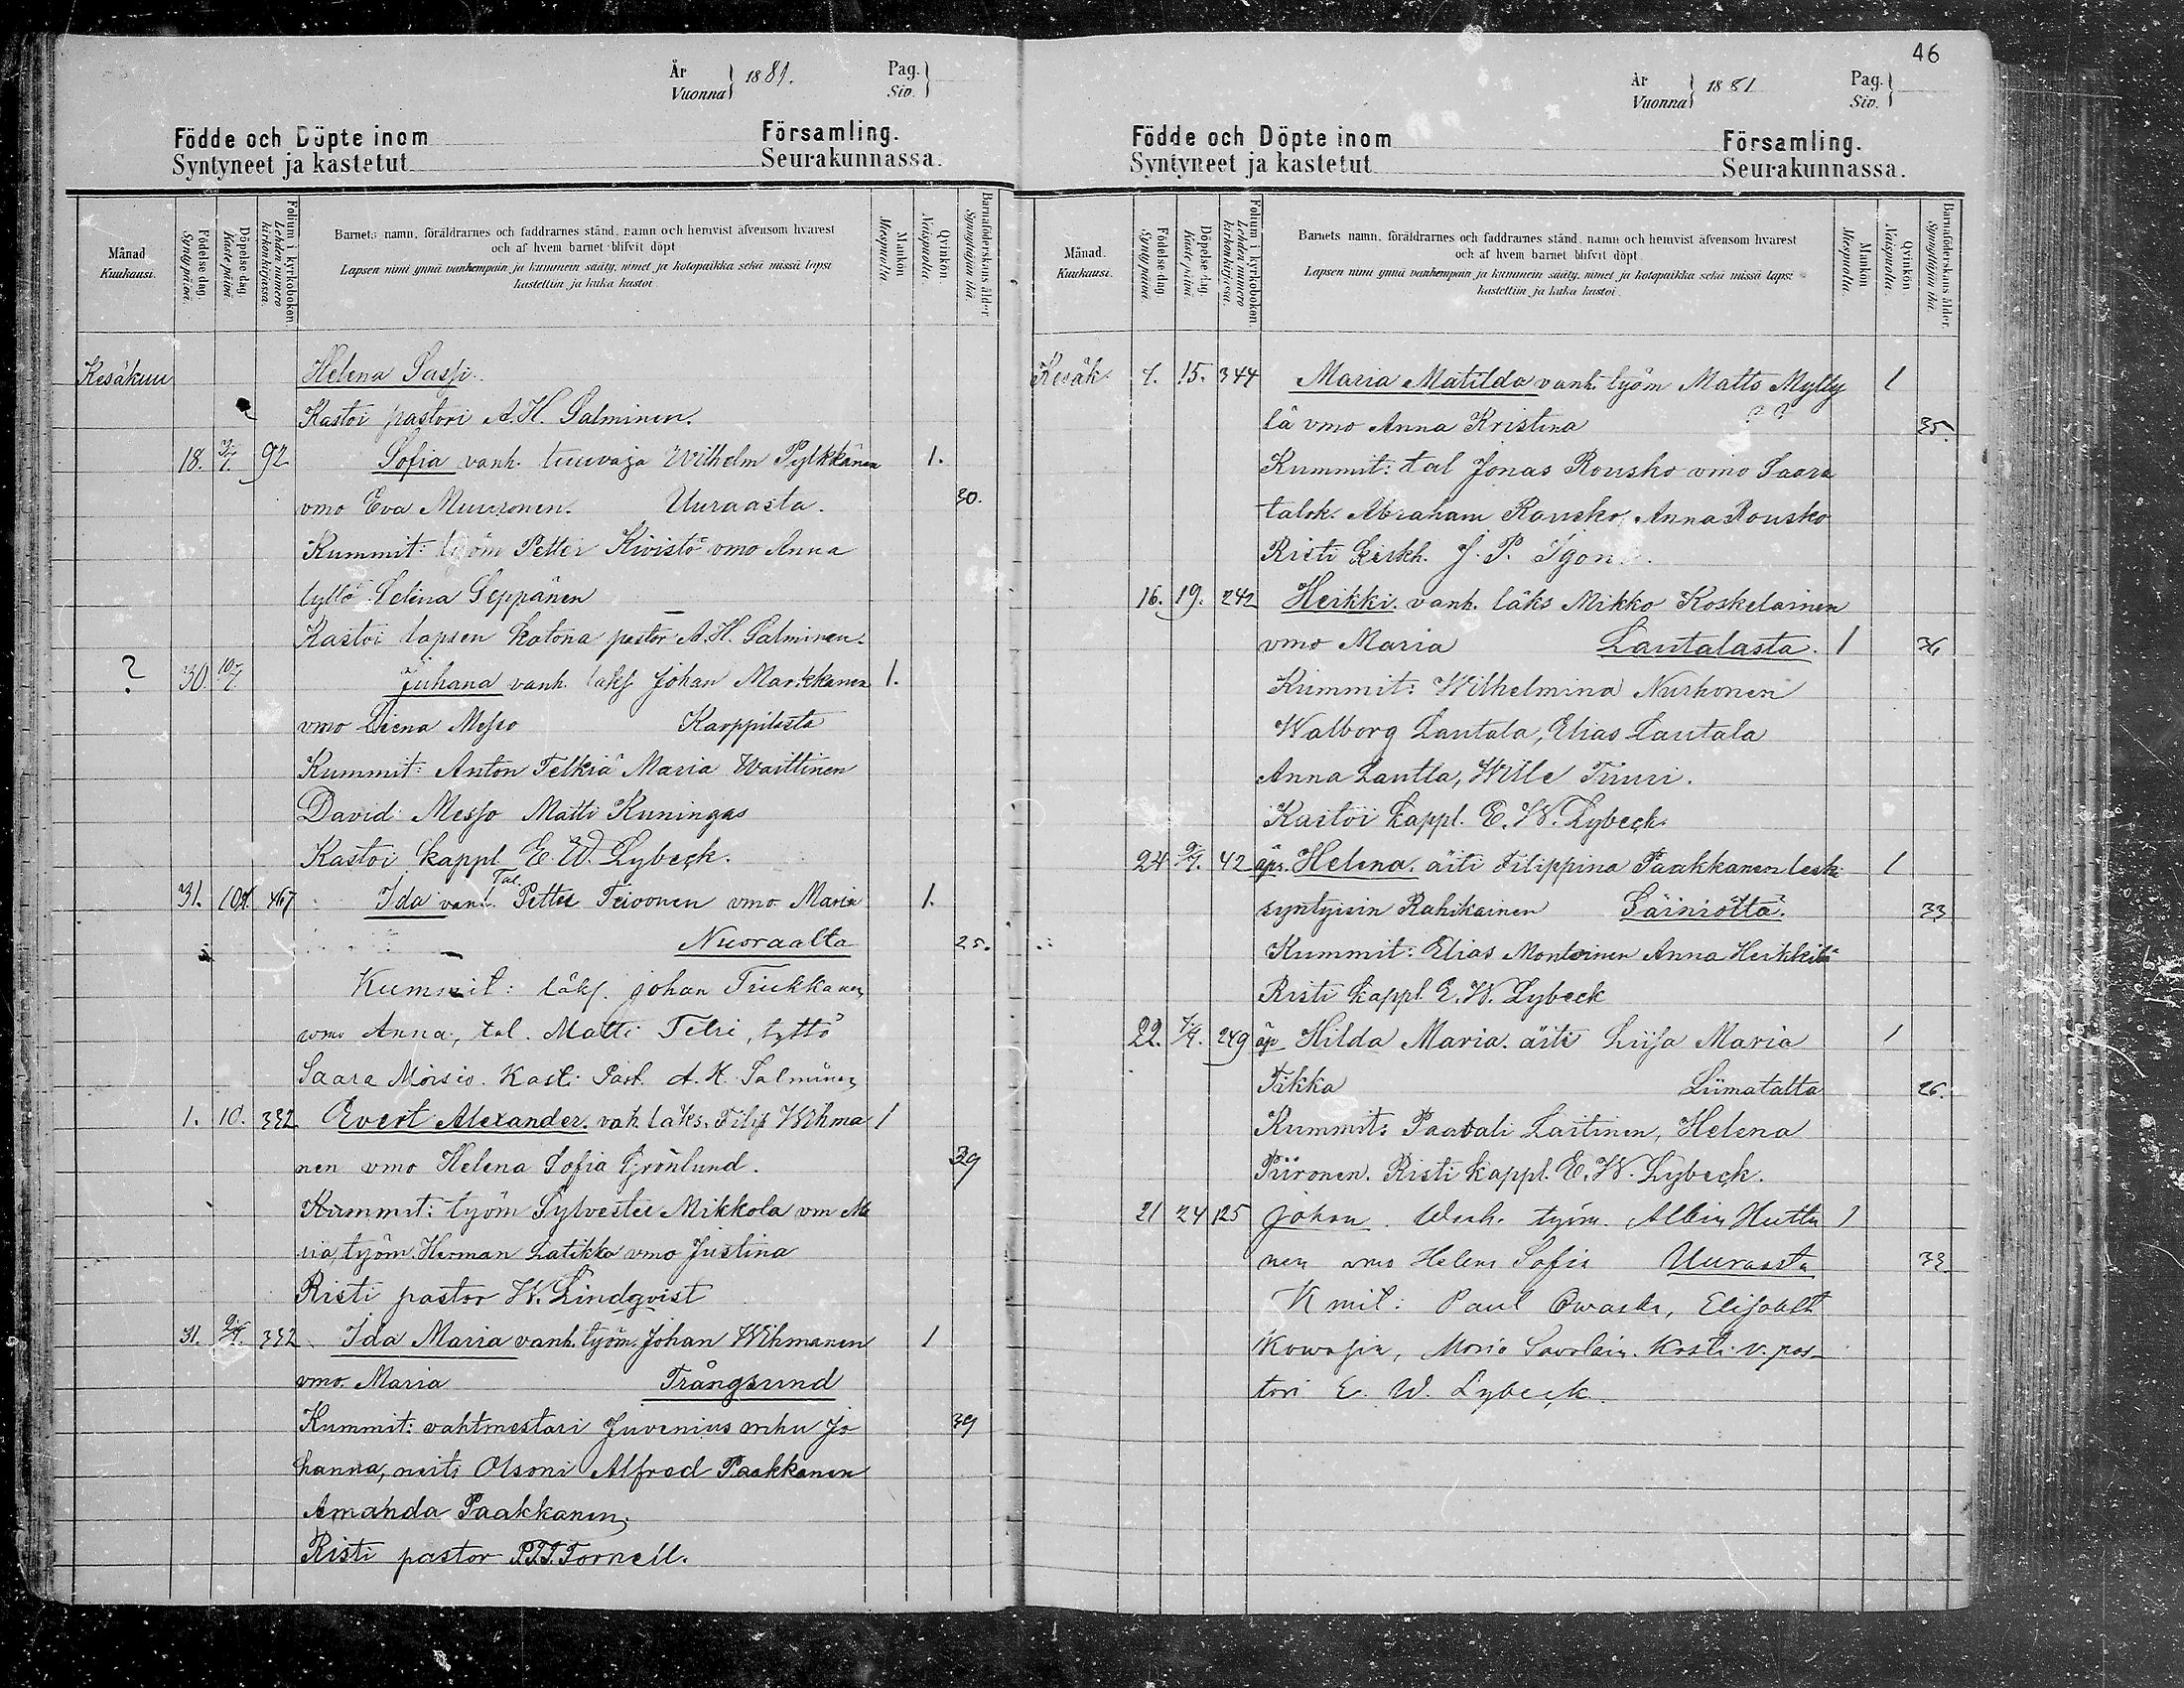 År
Vuonna
1881.
Pag.
Siv.
Födde och Döpte inom Församling.
Syntyneet ja kastetut Seurakunnassa.
Månad
Kuukausi.
Födelse dag.
Syntypäivä.
Döpelse dag.
Kaste päivä.
Folium i kyrkoboken
Lehden numero kirkonkirjassa.
Barnets namn, föräldrarnes och faddrarnes stånd, namn och hemvist äfvensom hvarest
och af hvem barnet blifvit döpt
Lapsen nimi ynnä vanhempain ja kummein sääty, nimet ja kotopaikka sekä missä lapsi
kastettiin ja kuka kastoi.
Mankön
Miespuolta.
Qvinkön.
Naispuolta.
Barnaföderskans ålder
Synnyttäjän ikä.
Kesäkuu Helena Sassi.
Kastoi pastori A. H. Salminen.
18. 3/7. 92 Sofia vanh. Wilhelm Pylkkänen 1.
vmo Eva Muuronen. Uuraasta. 30.
Kummit: työm Petter Kivistö vmo Anna
tyttö Selina Seppänen
Kastoi lapsen kotona pastor A. H. Salminen.
? 30. 10/7. Juhana vanh. läks Johan Markkanen 1.
vmo Liena Messo Karppilasta
Kummit: Anton Telkiä Maria Waittinen
David Messo Matti Kuningas
Kastoi kappl. E. W. Lybeck.
31. 467 Ida vanh. Tal. Petter Teivonen vmo Maria 1.
Nuoraalta 25.
Kummit: läks. Johan Tiukkanen
vmo Anna, tal. Matti Telri, tyttö
Saara Moisio. Kasti Past. A. H. Salminen
1. 10. 332 Evert Alexander. vah. läks. Filip Wihma 1
nen vmo Helena Sofia Grönlund. 29
Kummit: työm Sylvester Mikkola vm Ma
ria, työm. Herman Latikka vmo Justina
Risti pastor W. Lindqvist
31. 332 Ida Maria vanh. työm Johan Wihmanen 1
vmo. Maria Trångsund
Kummit: vahtmestari Juvenius Jo 39
hanna, neiti Olsoni Alfred Paakkanen
Amanda Paakkanen.
Risti pastor Tornell.
46
År
Vuonna
1881
Pag.
Siv.
Födde och Döpte inom Församling.
Syntyneet ja kastetut Seurakunnassa.
Månad.
Kuukausi.
Födelse dag.
Syntypäivä.
Döpelse dag.
Kaste päivä.
Folium i kyrkoboken.
Lehden numero kirkonkirjassa.
Barnets namn, föräldrarnes och faddrarnes stånd, namn och hemvist äfvensom hvarest
och af hvem barnet blifvit döpt.
Lapsen nimi ynnä vanhempain ja kummein sääty, nimet ja kotopaikka sekä missä lapsi
kastettiin ja kuka kastoi.
Mankön
Miespuolta.
Qvinkön
Naispuolta.
Barnaföderskans ålder.
Synnyttäjän ikä.
Kesäk. 15. 344 Maria Matilda vanh. työm Matts Mylly 1
lä vmo Anna Kristina ?? 35.
Kummit: tal Jonas Rousko vmo Saara
talok. Abraham Rousko, Anna Rousko
Risti kirkh. J. P. Igon
16. 19. 242 Heikki. vanh. läks Mikko Koskelainen
vmo Maria Lautalasta. 1 36
Kummit: Wilhelmina Nurhonen
Walborg Lautala, Elias Lautala
Anna Lautla, Wille Tiuri.
Kastoi kappl. E. W. Lybeck.
24 9/7. 42 äps. Helena. äiti Filippina Paakkanen leski 1
syntyisin Rahikainen Säiniöltä. 33
Kummit: Elias Montoinen Anna Heikkilä
Risti kappl. E. W. Lybeck
22. 249 äp Hilda Maria. äiti Liisa Maria 1
Tikka Liimatalta 26.
Kummit: Paavali Laitinen, Helena
Piironen. Risti kappl. E. W. Lybeck.
21 24 125 Johan. työm. Albin Huttu 1
nen vmo Helena Sofia Uuraasta 33
Kmit: Paul Owaska, Elisabet
Kowasin, Maria Savolain. Kasti v. pas-
tori E. W. Lybeck.